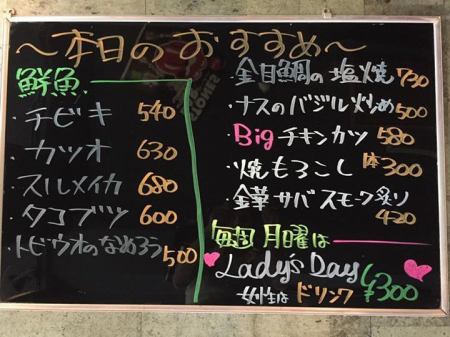 ～本日のおすすめ～
鮮魚
・チビキ 540
・カツオ 630
・スルメイカ 680
・タコブツ 600
・トビウオのなめろう 500
・金目鯛の塩焼 730
・ナスのバジル炒め 500
・Bigチキンカツ 580
・焼もろこし 1本 300
・金華サバスモーク炙り 420
毎週月曜は
Lady's Day
女性はドリンク ¥300